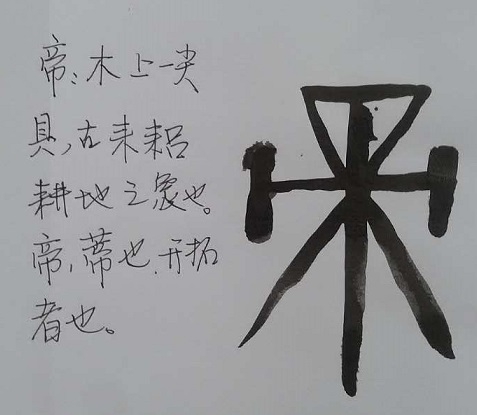 帝:木上一尖
具,古耒耜
耕地之象也。
帝,蒂也,开拓
者也。
帝